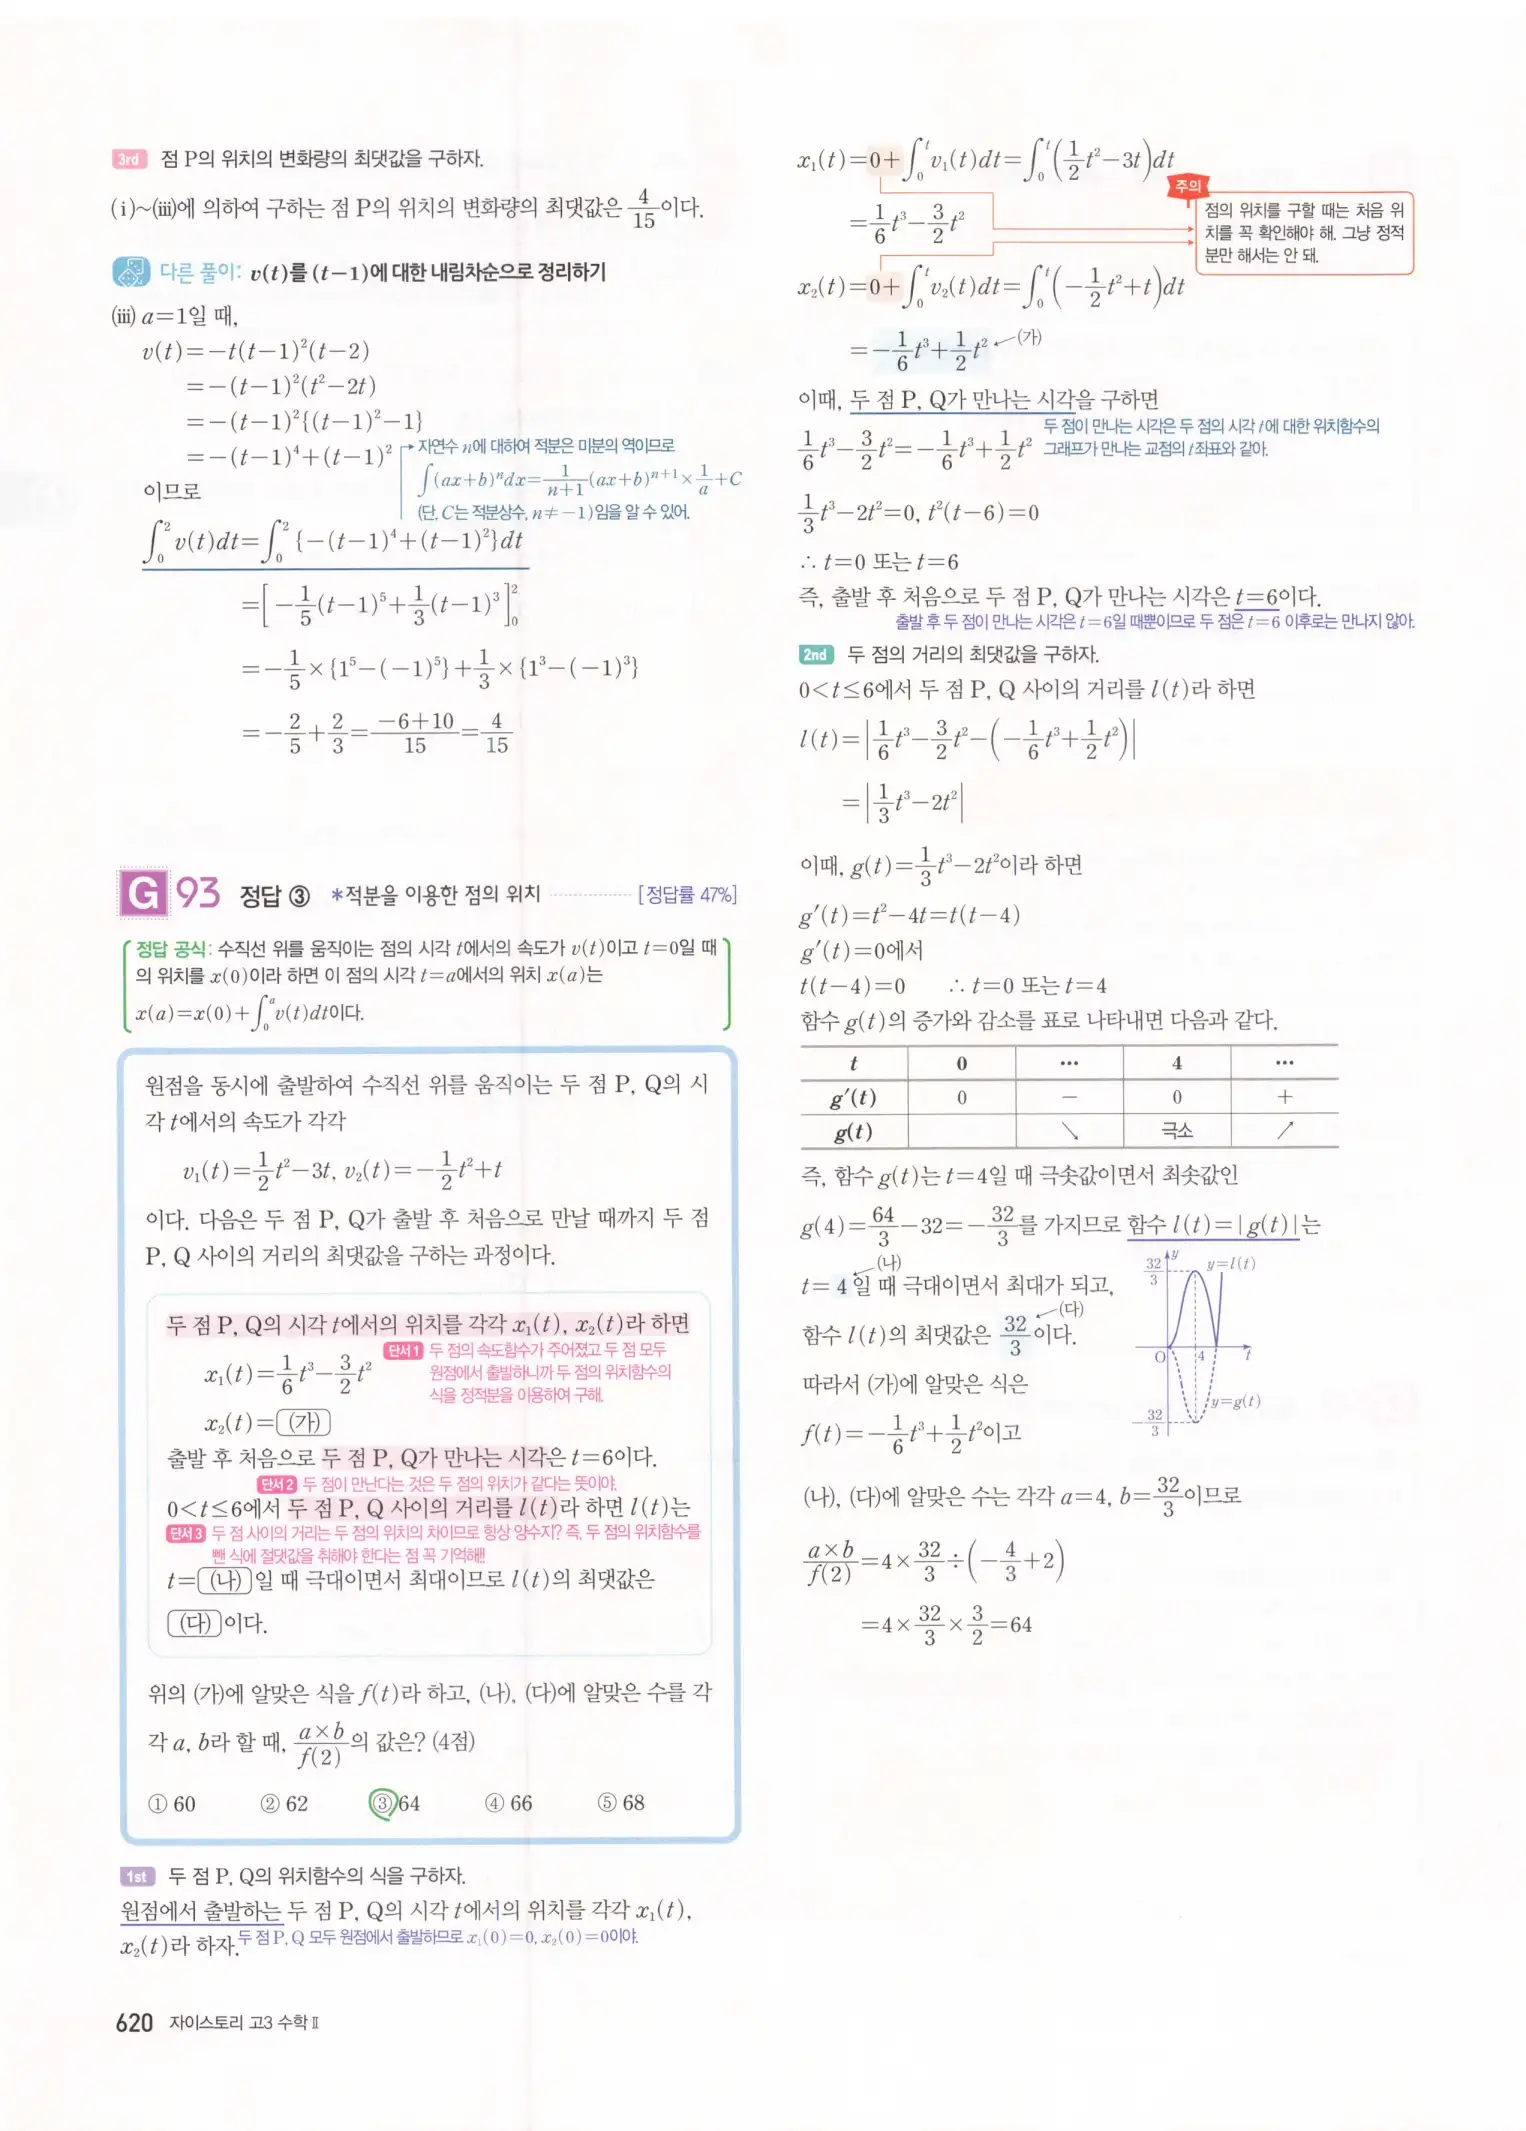 3rd 점 P의 위치의 변화량의 최댓값을 구하자.
(ⅰ)~(ⅲ)에 의하여 구하는 점 P의 위치의 변화량의 최댓값은 4/15이다.
다른 풀이: v(t)를 (t−1)에 대한 내림차순으로 정리하기
(ⅲ) a=1일 때,
v(t)=−t(t−1)²(t−2)
=−(t−1)²(t²−2t)
=−(t−1)²{(t−1)²−1}
=−(t−1)⁴+(t−1)²
자연수 n에 대하여 적분은 미분의 역이므로
∫(ax+b)ⁿdx=1/(n+1)(ax+b)ⁿ⁺¹×1/a+C
(단, C는 적분상수, n≠−1)임을 알 수 있어.
이므로
∫₀²v(t)dt=∫₀²{−(t−1)⁴+(t−1)²}dt
=[−1/5(t−1)⁵+1/3(t−1)³]₀²
=−1/5×{1⁵−(−1)⁵}+1/3×{1³−(−1)³}
=−2/5+2/3=(−6+10)/15=4/15
G 93 정답 ③ *적분을 이용한 점의 위치 [정답률 47%]
정답 공식: 수직선 위를 움직이는 점의 시각 t에서의 속도가 v(t)이고 t=0일 때
의 위치를 x(0)이라 하면 이 점의 시각 t=a에서의 위치 x(a)는
x(a)=x(0)+∫₀ᵃv(t)dt이다.
원점을 동시에 출발하여 수직선 위를 움직이는 두 점 P, Q의 시
각 t에서의 속도가 각각
v₁(t)=1/2t²−3t, v₂(t)=−1/2t²+t
이다. 다음은 두 점 P, Q가 출발 후 처음으로 만날 때까지 두 점
P, Q 사이의 거리의 최댓값을 구하는 과정이다.
두 점 P, Q의 시각 t에서의 위치를 각각 x₁(t), x₂(t)라 하면
단서1 두 점의 속도함수가 주어졌고 두 점 모두
원점에서 출발하니까 두 점의 위치함수의
식을 정적분을 이용하여 구해.
x₁(t)=1/6t³−3/2t²
x₂(t)=(가)
출발 후 처음으로 두 점 P, Q가 만나는 시각은 t=6이다.
단서2 두 점이 만난다는 것은 두 점의 위치가 같다는 뜻이야.
0<t≤6에서 두 점 P, Q 사이의 거리를 l(t)라 하면 l(t)는
단서3 두 점 사이의 거리는 두 점의 위치의 차이므로 항상 양수지? 즉, 두 점의 위치함수를
뺀 식에 절댓값을 취해야 한다는 점 꼭 기억해!!
t=(나)일 때 극대이면서 최대이므로 l(t)의 최댓값은
(다)이다.
위의 (가)에 알맞은 식을 f(t)라 하고, (나), (다)에 알맞은 수를 각
각 a, b라 할 때, (a×b)/f(2)의 값은? (4점)
① 60 ② 62 ③ 64 ④ 66 ⑤ 68
1st 두 점 P, Q의 위치함수의 식을 구하자.
원점에서 출발하는 두 점 P, Q의 시각 t에서의 위치를 각각 x₁(t),
x₂(t)라 하자. 두 점 P, Q 모두 원점에서 출발하므로 x₁(0)=0, x₂(0)=0이야.
620 자이스토리 고3 수학 Ⅱ
x₁(t)=0+∫₀ᵗv₁(t)dt=∫₀ᵗ(1/2t²−3t)dt
=1/6t³−3/2t²
주의
점의 위치를 구할 때는 처음 위
치를 꼭 확인해야 해. 그냥 정적
분만 해서는 안 돼.
x₂(t)=0+∫₀ᵗv₂(t)dt=∫₀ᵗ(−1/2t²+t)dt
=−1/6t³+1/2t² (가)
이때, 두 점 P, Q가 만나는 시각을 구하면
두 점이 만나는 시각은 두 점의 시각 t에 대한 위치함수의
그래프가 만나는 교점의 t좌표와 같아.
1/6t³−3/2t²=−1/6t³+1/2t²
1/3t³−2t²=0, t²(t−6)=0
∴ t=0 또는 t=6
즉, 출발 후 처음으로 두 점 P, Q가 만나는 시각은 t=6이다.
출발 후 두 점이 만나는 시각은 t=6일 때뿐이므로 두 점은 t=6 이후로는 만나지 않아.
2nd 두 점의 거리의 최댓값을 구하자.
0<t≤6에서 두 점 P, Q 사이의 거리를 l(t)라 하면
l(t)=|1/6t³−3/2t²−(−1/6t³+1/2t²)|
=|1/3t³−2t²|
이때, g(t)=1/3t³−2t²이라 하면
g′(t)=t²−4t=t(t−4)
g′(t)=0에서
t(t−4)=0 ∴ t=0 또는 t=4
함수 g(t)의 증가와 감소를 표로 나타내면 다음과 같다.
t 0 … 4 …
g′(t) 0 − 0 +
g(t) ↘ 극소 ↗
즉, 함수 g(t)는 t=4일 때 극솟값이면서 최솟값인
g(4)=64/3−32=−32/3를 가지므로 함수 l(t)=|g(t)|는
(나)
t=4일 때 극대이면서 최대가 되고,
(다)
함수 l(t)의 최댓값은 32/3이다.
따라서 (가)에 알맞은 식은
f(t)=−1/6t³+1/2t²이고
y
32/3
y=l(t)
O 4 t
y=g(t)
−32/3
(나), (다)에 알맞은 수는 각각 a=4, b=32/3이므로
(a×b)/f(2)=4×32/3÷(−4/3+2)
=4×32/3×3/2=64